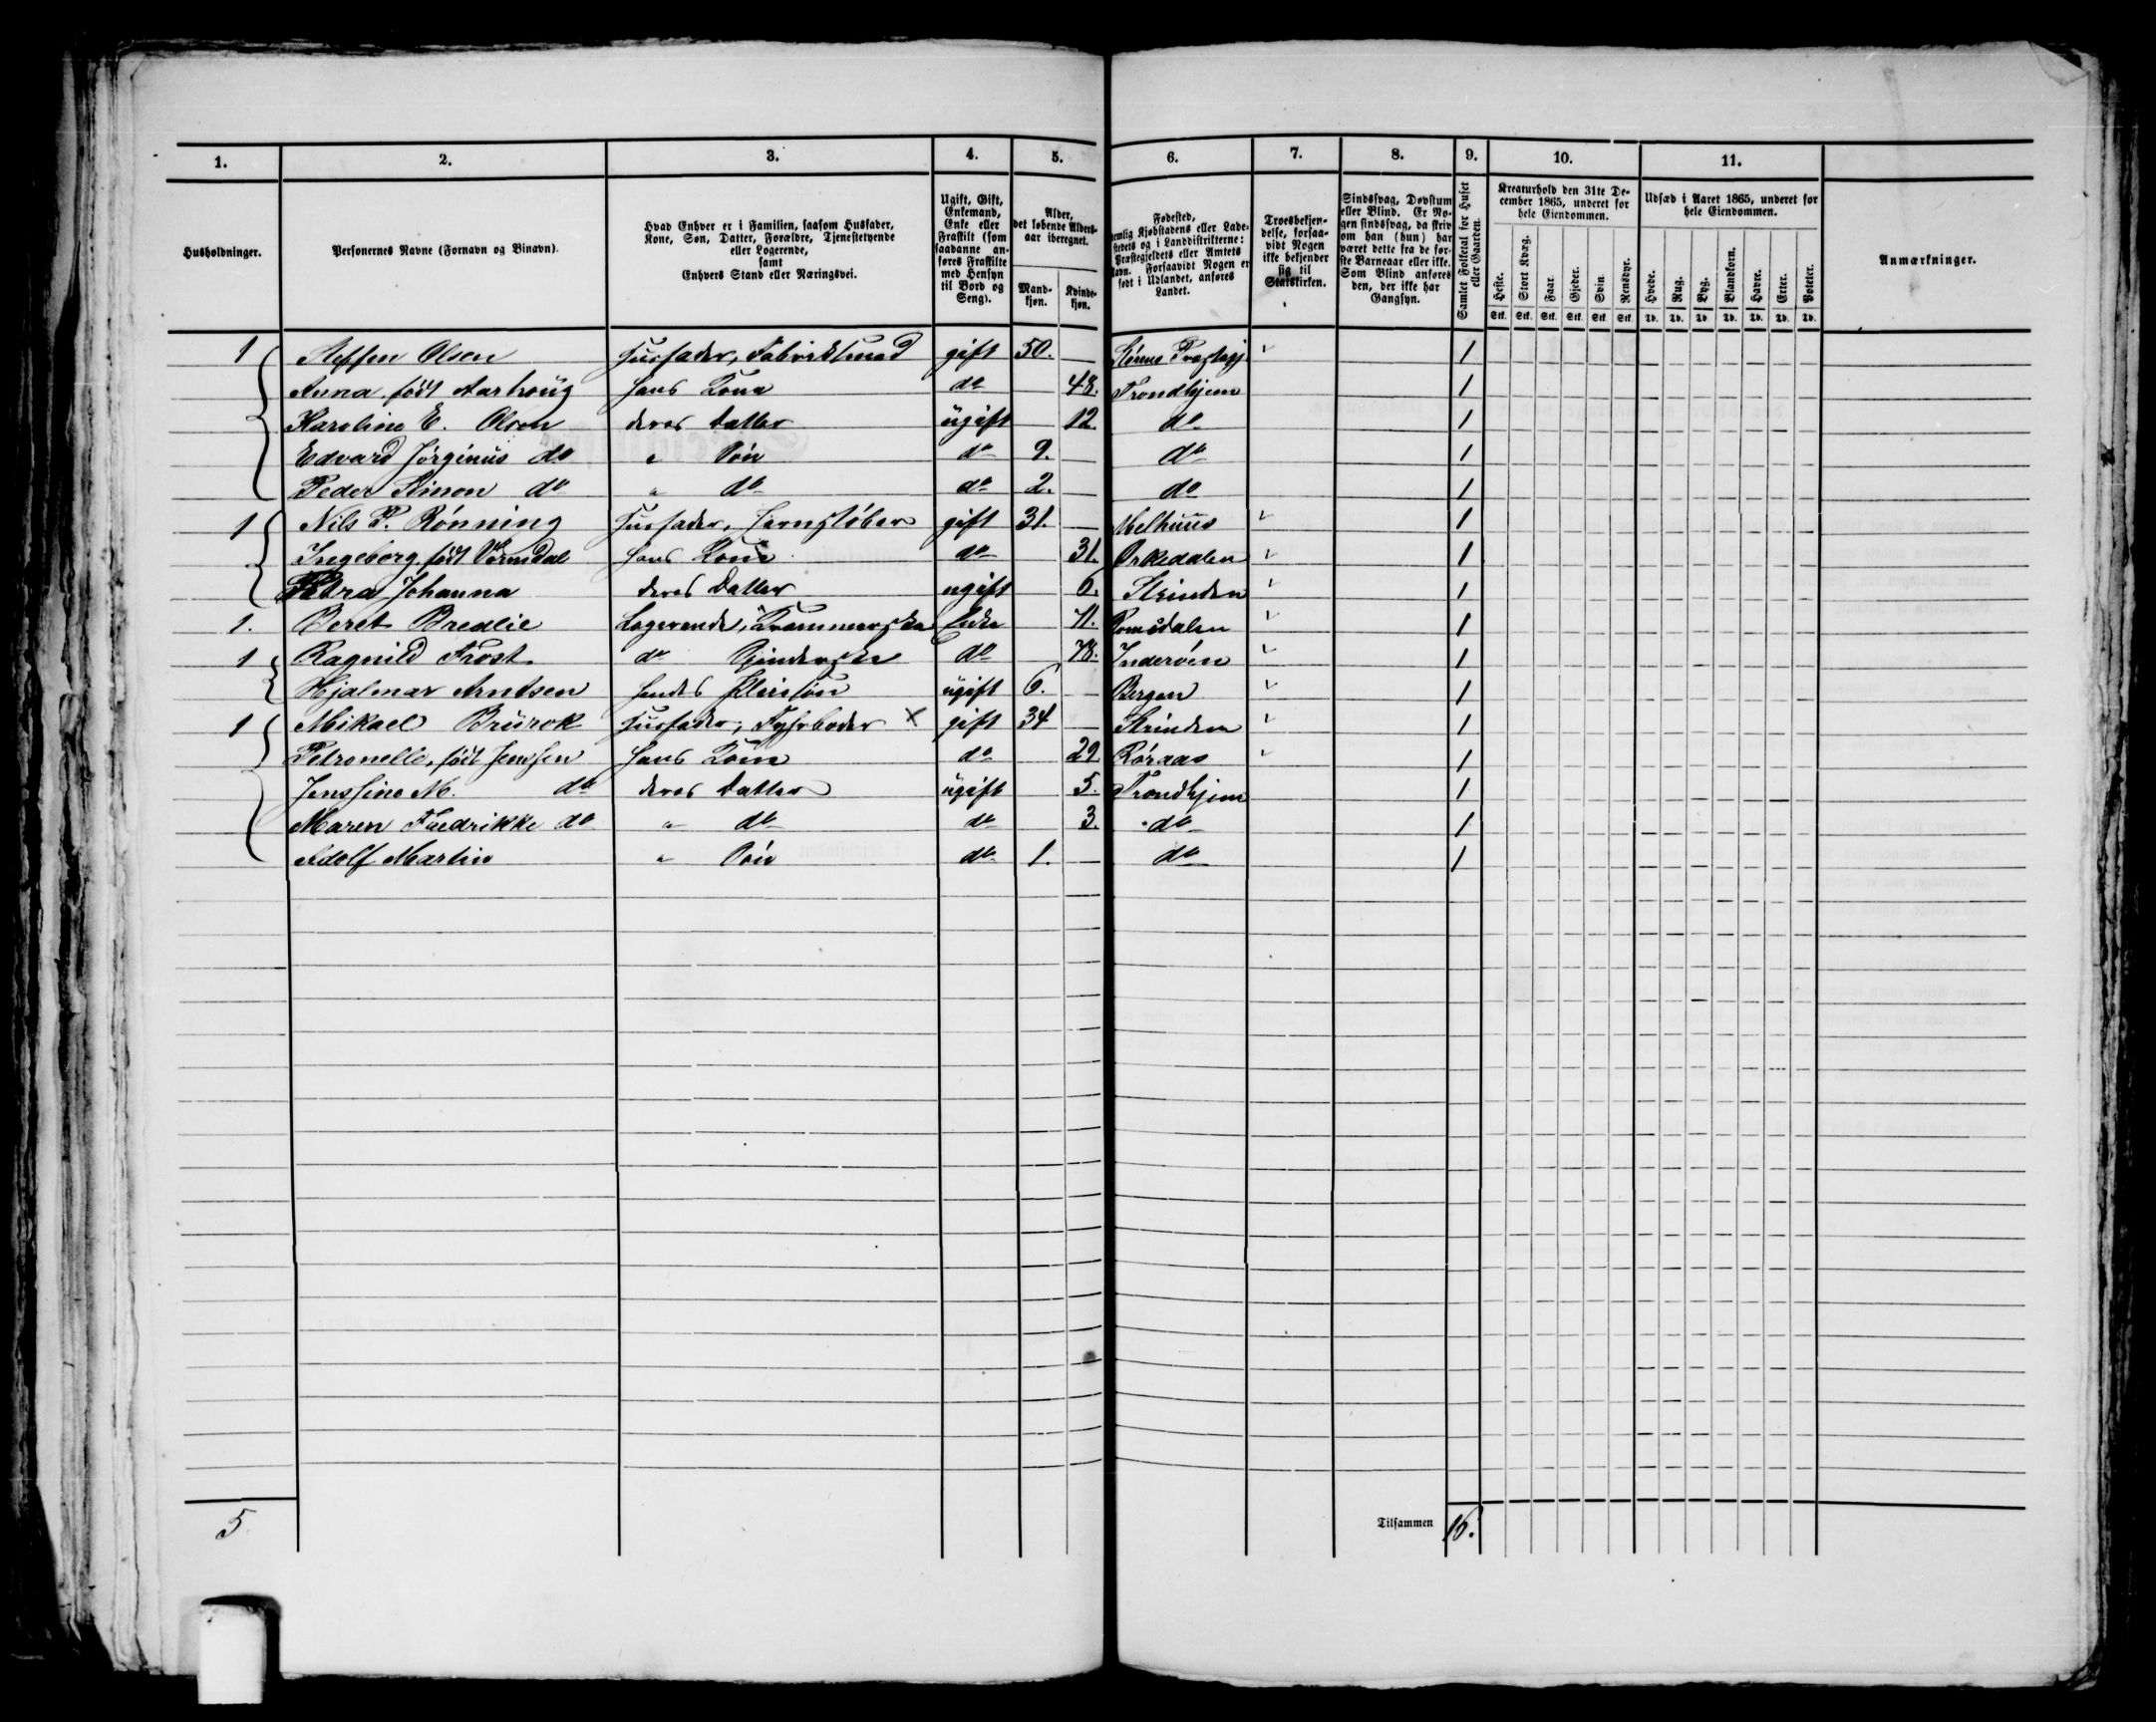 1. 2. 3. 4. 5. 6. 7. 8. 9. 10. 11.
Husholdninger.
Personernes Navne (Fornavn og Binavn).
Hvad Enhver er i Familien, saasom Husfader,
Kone, Søn, Datter, Forældre, Tjenestetyende
eller Logerende,
samt
Enhvers Stand eller Næringsvei.
Ugift, Gift,
Enkemand,
Enke eller
Fraskilt (som
saadanne an-
føres Fraskilte
med Hensyn
til Bord og
Seng).
Alder,
det løbende Alders-
aar iberegnet.
Mand-
kjøn.
Kvinde-
kjøn.
Fødested,
nemlig Kjøbstadens eller Lade-
stedets og i Landdistrikterne:
Præstegjeldets eller Amtets
Navn. Forsaavidt Nogen er
født i Udlandet, anføres
Landet.
Troesbekjen-
delse, forsaa-
vidt Nogen
ikke bekjender
sig til
Statskirken.
Sindssvag, Døvstum
eller Blind. Er No-
gen sindssvag, da skriv
om han (hun) har
været dette fra de før-
ste Barneaar eller ikke.
Som Blind anføres
den, der ikke har
Gangsyn.
Samlet Folketal for Huset
eller Gaarden.
Kreaturhold den 31te De-
cember 1865, underet for
hele Eiendommen.
Heste. Stort Kvæg. Faar. Gjeder. Svin. Rensdyr.
Stk. Stk. Stk. Stk. Stk. Stk.
Udsæd i Aaret 1865, underet for
hele Eiendommen.
Hvede. Rug. Byg. Blandkorn. Havre. Erter. Poteter.
Td. Td. Td. Td. Td. Td. Td.
Anmærkninger.
1 Steffen Olsen Husfader, Fabriksmed gift 50. Præstegj. 1
Anna, født Aarhoug hans Kone do 48. Trondhjem 1
Karoline E. Olsen deres Datter ugift 12. do 1
Edvard Jørginus do " Søn do 9. do 1
Peder Simon do " do do 2. do 1
1 Nils P. Rønning Husfader, Jernstøber gift 31. Melhuus 1
Ingeborg født Vormdal hans Kone do 31. Orkedalen 1
Petra Johanna deres Datter ugift 6. Strinden 1
1. Beret Bredlie Logerende, Enke 71. Romsdalen 1
1 Ragnild Frost do Spinderske do 78. Inderøen 1
Hjalmar Arntsen hendes Pleiesøn ugift 6. Bergen 1
1 Mikael Brurok Husfader, Fyrbøder × gift 34 Strinden 1
Petronelle, født Jenssen hans Kone do 29 Røraas 1
Jenssine M. do deres Datter ugift 5. Trondhjem 1
Maren Fredrikke do " do do 3. do 1
Adolf Martin " Søn do 1. do 1
5
Tilsammen 16.